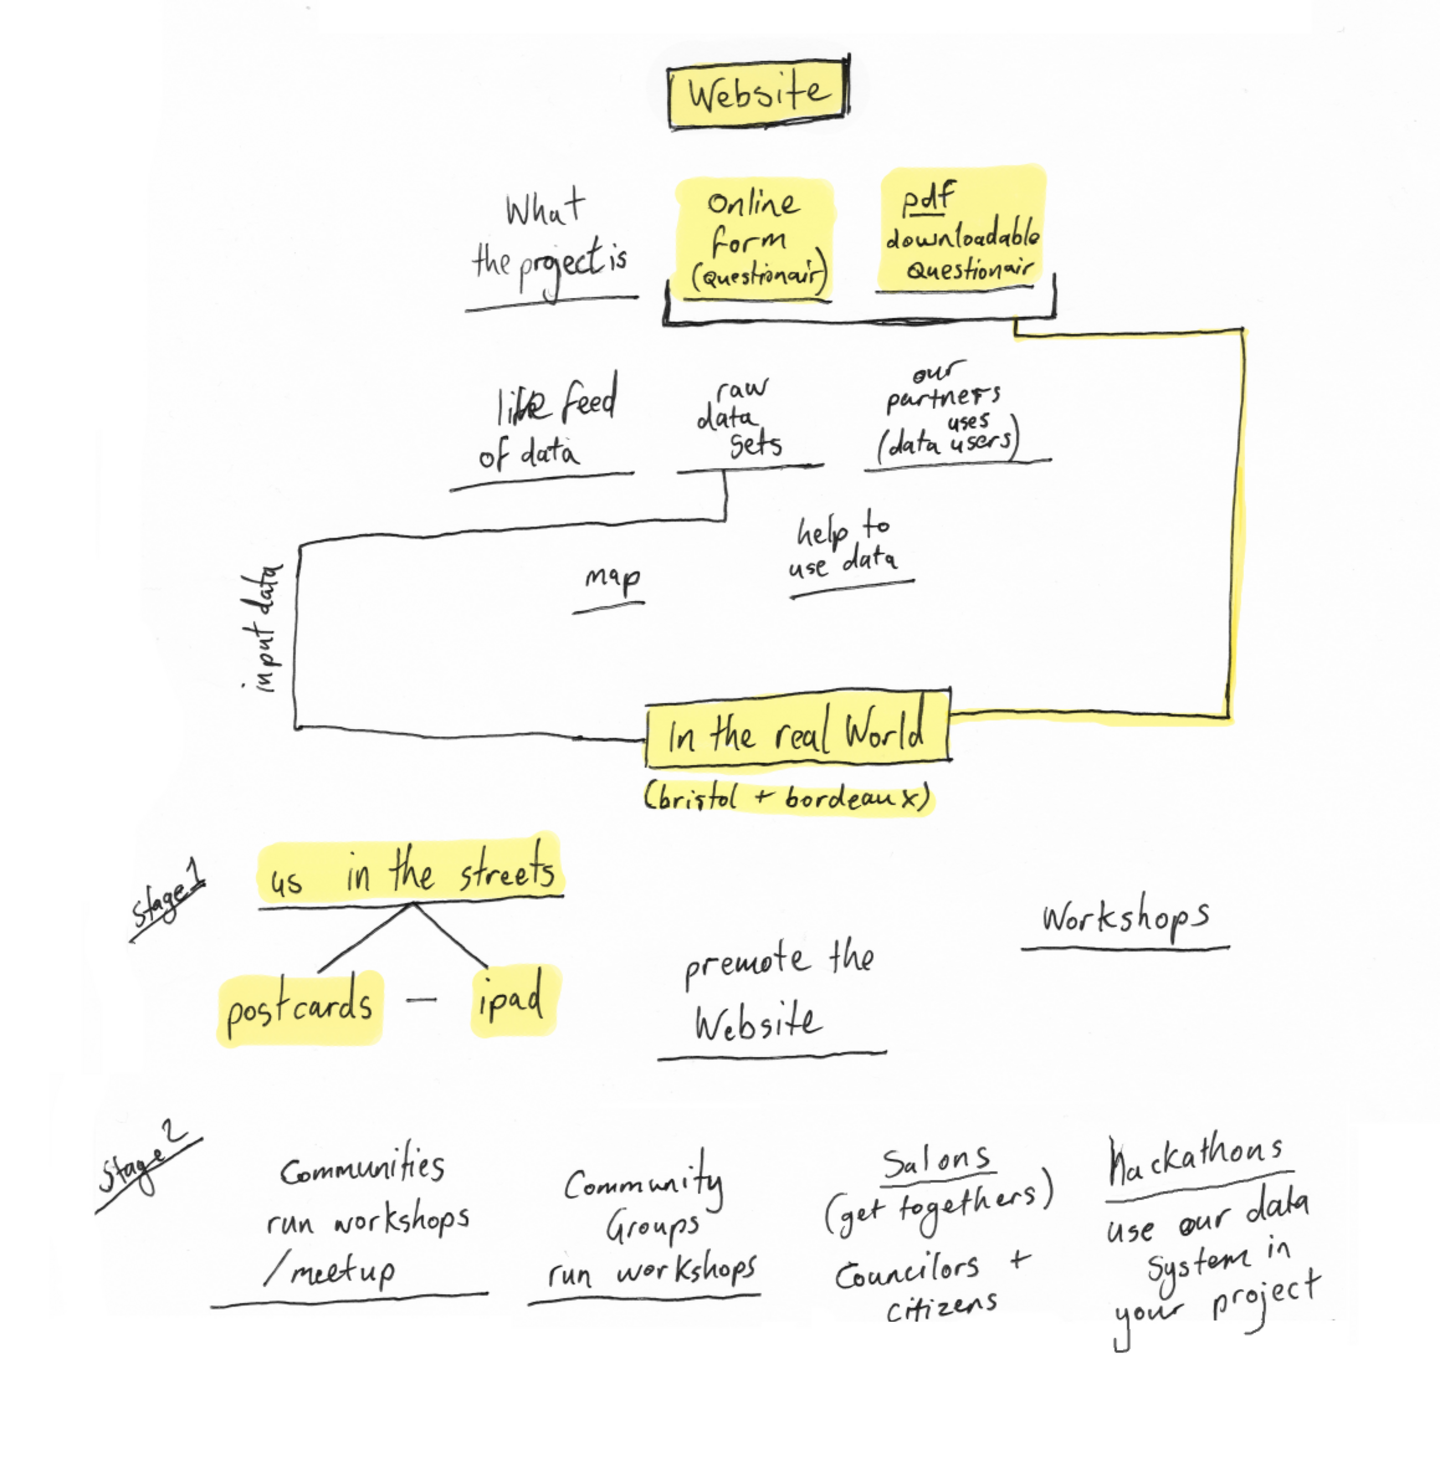 Website
What
the project is
Online
form
(Questionair)
pdf
downloadable
Questionair
feed
of data
raw
data
sets
our
partners
uses
(data users)
help to
use data
map
input data
In the real World
(bristol + bordeaux)
Stage 1
us in the streets
postcards - ipad
premote the
Website
Workshops
Stage 2
Communities
run workshops
/meetup
Community
Groups
run workshops
Salons
(get togethers)
Councilors +
citizens
hackathons
use our data
System in
your project